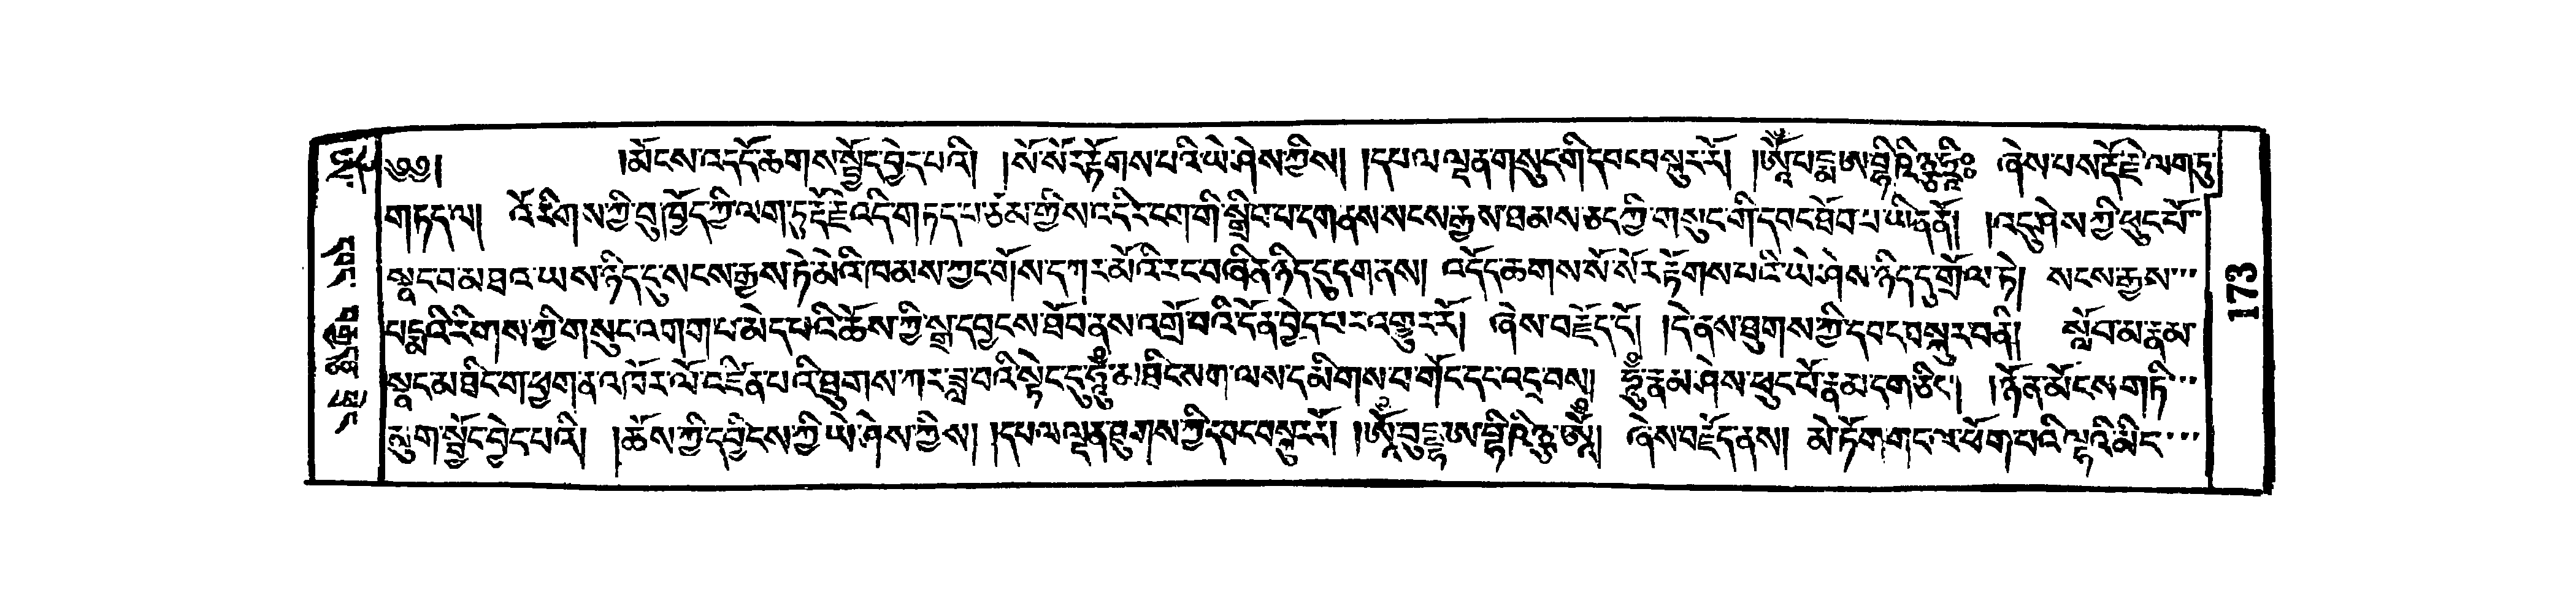 ༄༅། །མོངས་འདོད་ཆགས་སྦྱོང་བྱེད་པའི། །སོ་སོར་རྟོགས་པའི་ཡེ་ཤེས་ཀྱིས། །དཔལ་ལྡན་གསུང་གི་དབང་བསྐུར་རོ། །ཨོཾ་པདྨ་ཨ་བྷི་ཥིཉྩ་ཧྲཱིཿ ཞེས་པས་རྡོ་རྗེ་ལག་ཏུ་
གཏད་ལ། འོ་རིགས་ཀྱི་བུ་ཁྱོད་ཀྱི་ལག་ཏུ་རྡོ་རྗེ་འདི་གཏད་པ་ཙམ་གྱིས་འདིར་ངག་གི་སྒྲིབ་པ་དག་ནས་སངས་རྒྱས་ཐམས་ཅད་ཀྱི་གསུང་གི་དབང་ཐོབ་པ་ཡིན་ནོ། །འདུ་ཤེས་ཀྱི་ཕུང་པོ་
སྣང་བ་མཐའ་ཡས་ཉིད་དུ་སངས་རྒྱས་ཏེ་མེའི་ཁམས་ཀྱང་གོས་དཀར་མོའི་རང་བཞིན་ཉིད་དུ་དག་ནས། འདོད་ཆགས་སོ་སོར་རྟོགས་པའི་ཡེ་ཤེས་ཉིད་དུ་གྲོལ་ཏེ། སངས་རྒྱས་...
པདྨའི་རིགས་ཀྱི་གསུང་འགག་པ་མེད་པའི་ཆོས་ཀྱི་སྒྲ་དབྱངས་ཐོབ་ནས་འགྲོ་བའི་དོན་བྱེད་པར་འགྱུར་རོ། ཞེས་བརྗོད་དོ། །དེ་ནས་ཐུགས་ཀྱི་དབང་བསྐུར་བ་ནི། སློབ་མ་རྣམ་
སྣང་མཐིང་ག་ཕྱག་ན་འཁོར་ལོ་འཛིན་པའི་ཐུགས་ཀར་ཟླ་བའི་སྟེང་དུ་ཧཱུྃ་མཐིང་ག་ལས་དམིགས་པ་གོང་དང་འདྲ་བས། ཧཱུྃ་རྣམ་ཤེས་ཕུང་པོ་རྣམ་དག་ཅིང་། །ཉོན་མོངས་གཏི་...
མུག་སྦྱོང་བྱེད་པའི། །ཆོས་ཀྱི་དབྱིངས་ཀྱི་ཡེ་ཤེས་ཀྱིས། །དཔལ་ལྡན་ཐུགས་ཀྱི་དབང་བསྐུར་རོ། །ཨོཾ་བུདྡྷ་ཨ་བྷི་ཥིཉྩ་ཨོཾ། ཞེས་བརྗོད་ནས། མེ་ཏོག་གང་ལ་ཕོག་པའི་ལྷའི་མིང་...